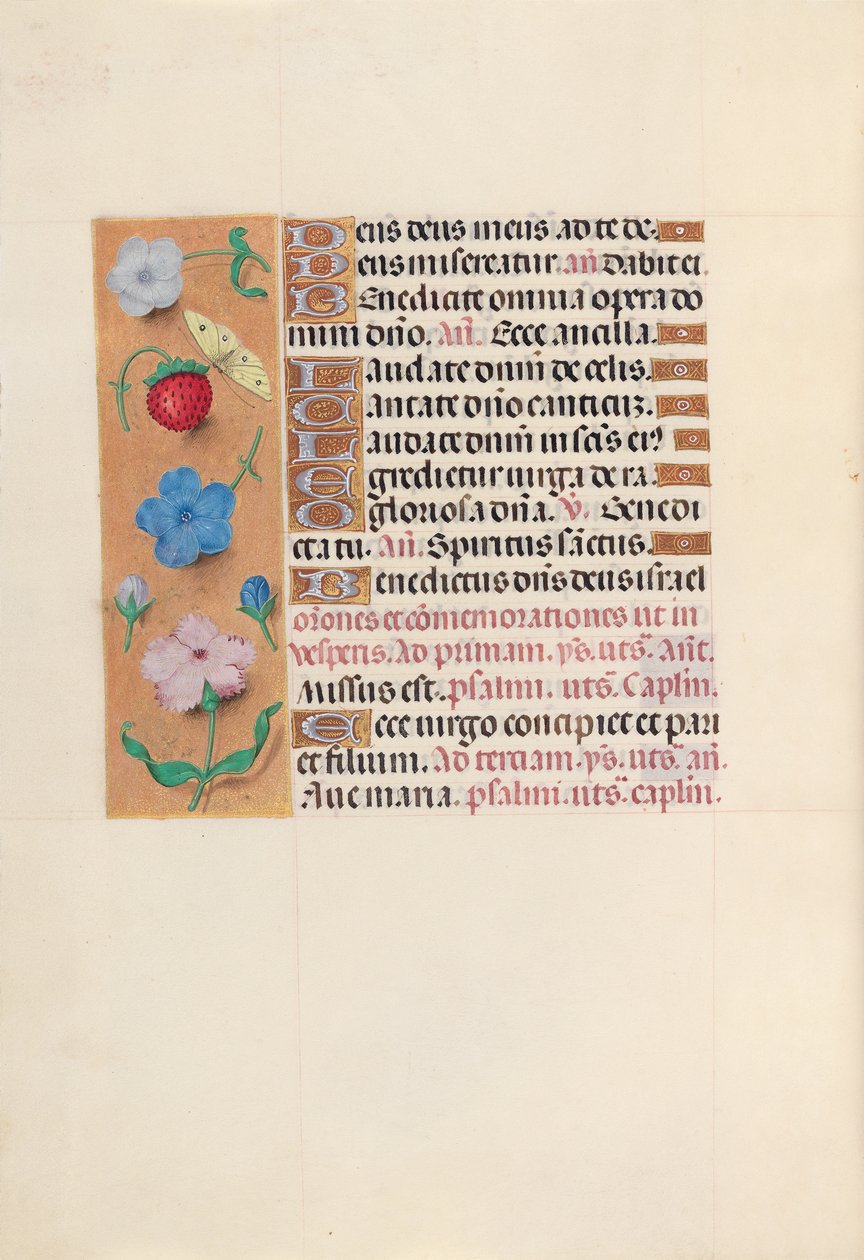 Deus deus meus ad te de
Deus misereatur. añ dabit ei.
Benedicite omnia opera do
mini dño. Añ. Ecce ancilla.
Laudate dnm̄ de celis.
Cantate dño canticuz.
Laudate dnm̄ in scīs eiꝰ
Egredietur uirga de ra.
O gloriosa dña. V̄. Benedi
cta tu. Añ. Spiritus sānctus.
Benedictus dns̄ deus israel
orōnes et cōmemorationes ut in
vesperis. Ad primam. ps̄. uts̄. Ant̄.
Missus est. psalmi. uts̄. Caplm̄.
Ecce uirgo concipiet et pari
et filium. Ad terciam. ps̄. uts̄. añ.
Aue maria. psalmi. uts̄. caplm̄.